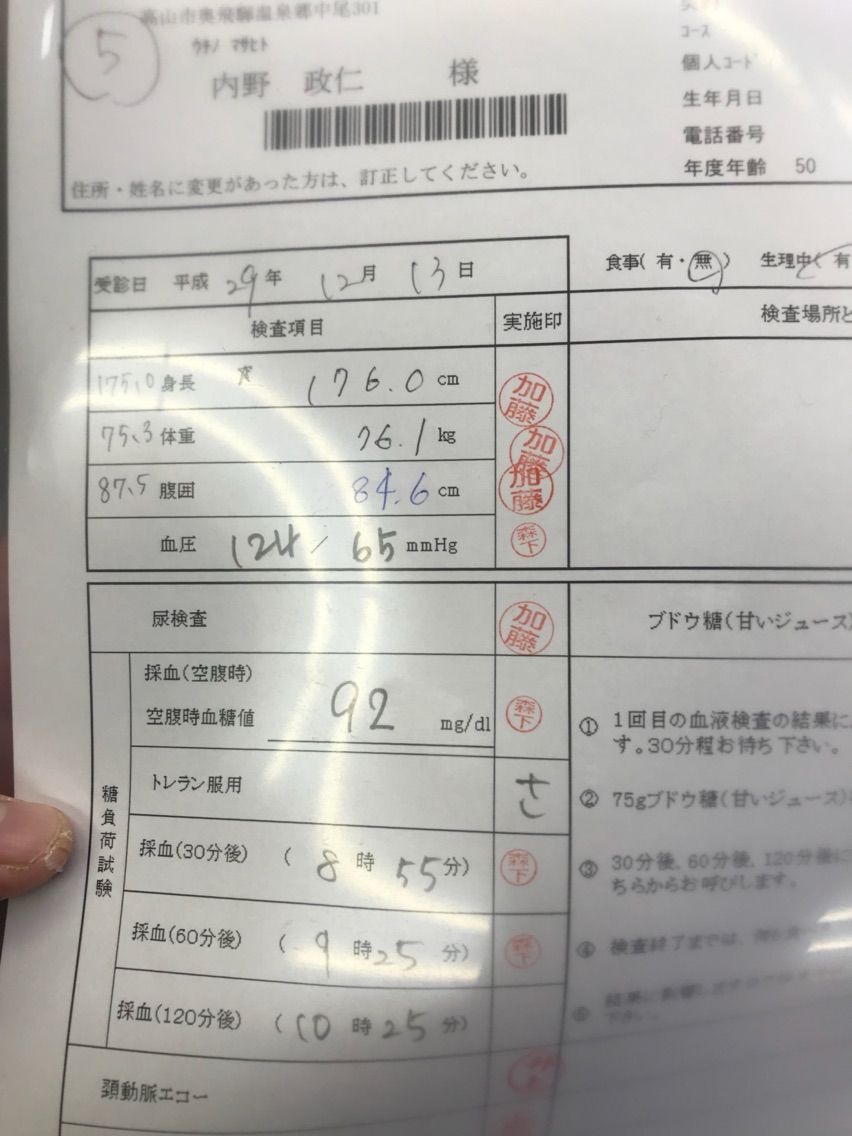 高山市奥飛騨温泉郷中尾301
5
ウチノ マサヒト
内野 政仁 様
コース
個人コード
生年月日
電話番号
年度年齢 50
住所・姓名に変更があった方は、訂正してください。
受診日 平成 29年 12月 13日
食事( 有・無 ) 生理中( 有
検査項目 実施印 検査場所と
175.0 身長 176.0 cm 加藤
75.3 体重 76.1 kg 加藤
87.5 腹囲 84.6 cm 加藤
血圧 124/65 mmHg 森下
尿検査 加藤
ブドウ糖(甘いジュース)
糖負荷試験
採血(空腹時)
空腹時血糖値 92 mg/dl 森下
① 1回目の血液検査の結果に
す。30分程お待ち下さい。
トレラン服用 さ
② 75gブドウ糖(甘いジュース)
採血(30分後) ( 8時 55分) 森下
③ 30分後、60分後、120分後に
ちらからお呼びします。
採血(60分後) ( 9時 25分) 森下
④ 検査終了までは、
採血(120分後) ( 10時 25分)
⑤ 結果に影響
下さい。
頸動脈エコー